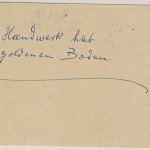 Handwerk hat
goldenen Boden